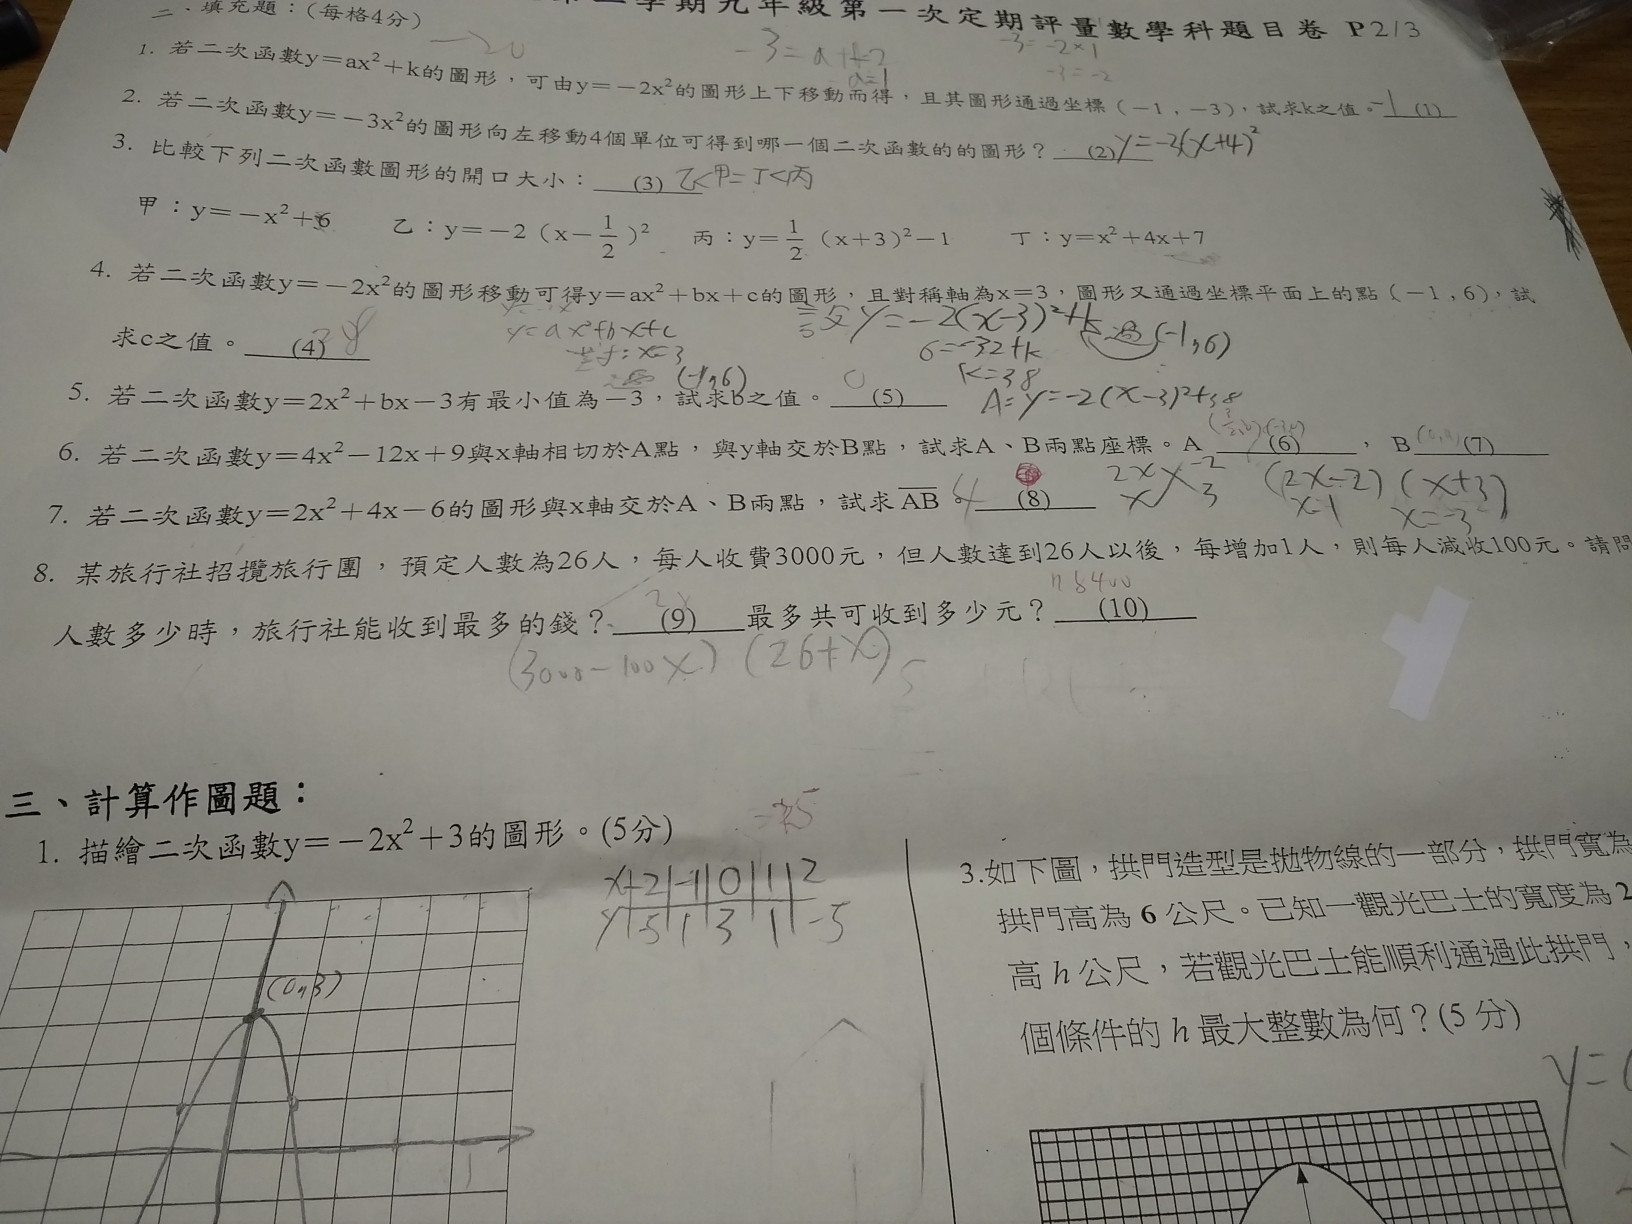 二學期九年級第一次定期評量數學科題目卷 P2/3
二、填充題：(每格4分)
-3=a+-2
a=1
-3=-2×1
-3=-2
1. 若二次函數y=ax²+k的圖形，可由y=-2x²的圖形上下移動而得，且其圖形通過坐標（-1，-3），試求k之值。-1 (1)
2. 若二次函數y=-3x²的圖形向左移動4個單位可得到哪一個二次函數的的圖形？ (2) y=-3(x+4)²
3. 比較下列二次函數圖形的開口大小： (3) 乙<甲=丁<丙
甲：y=-x²+6 乙：y=-2（x-1/2）² 丙：y=1/2（x+3）²-1 丁：y=x²+4x+7
4. 若二次函數y=-2x²的圖形移動可得y=ax²+bx+c的圖形，且對稱軸為x=3，圖形又通過坐標平面上的點（-1，6），試
求c之值。 (4)
y=ax²+bx+c
x=3
(-1,6)
設y=-2(x-3)²+k 過(-1,6)
6=-32+k
k=38
A=y=-2(x-3)²+38
5. 若二次函數y=2x²+bx-3有最小值為-3，試求b之值。 0 (5)
6. 若二次函數y=4x²-12x+9與x軸相切於A點，與y軸交於B點，試求A、B兩點座標。A (6) ，B (7)
7. 若二次函數y=2x²+4x-6的圖形與x軸交於A、B兩點，試求AB。4 (8)
2x -2
x 3
(2x-2) (x+3)
x=1 x=-3
8. 某旅行社招攬旅行團，預定人數為26人，每人收費3000元，但人數達到26人以後，每增加1人，則每人減收100元。請問
人數多少時，旅行社能收到最多的錢？ (9) 最多共可收到多少元？ (10)
78400
(3000-100x) (26+x)
三、計算作圖題：
1. 描繪二次函數y=-2x²+3的圖形。(5分)
x -2 -1 0 1 2
y -5 1 3 1 -5
(0,3)
3.如下圖，拱門造型是拋物線的一部分，拱門寬為
拱門高為 6 公尺。已知一觀光巴士的寬度為 2
高 h 公尺，若觀光巴士能順利通過此拱門，
個條件的 h 最大整數為何？(5 分)
y=